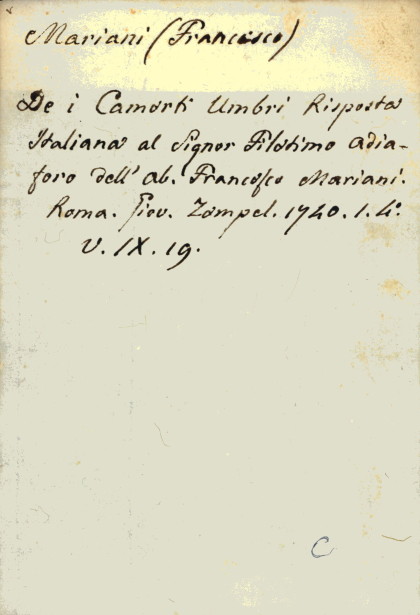 Mariani (Francesco)
De i Camorti Umbri Risposta
Italiana al Signor Filotimo adia-
foro dell' ab. Francesco Mariani.
Roma. Giov. Zempel. 1740. 1. 4°.
V. IX. 19.
C